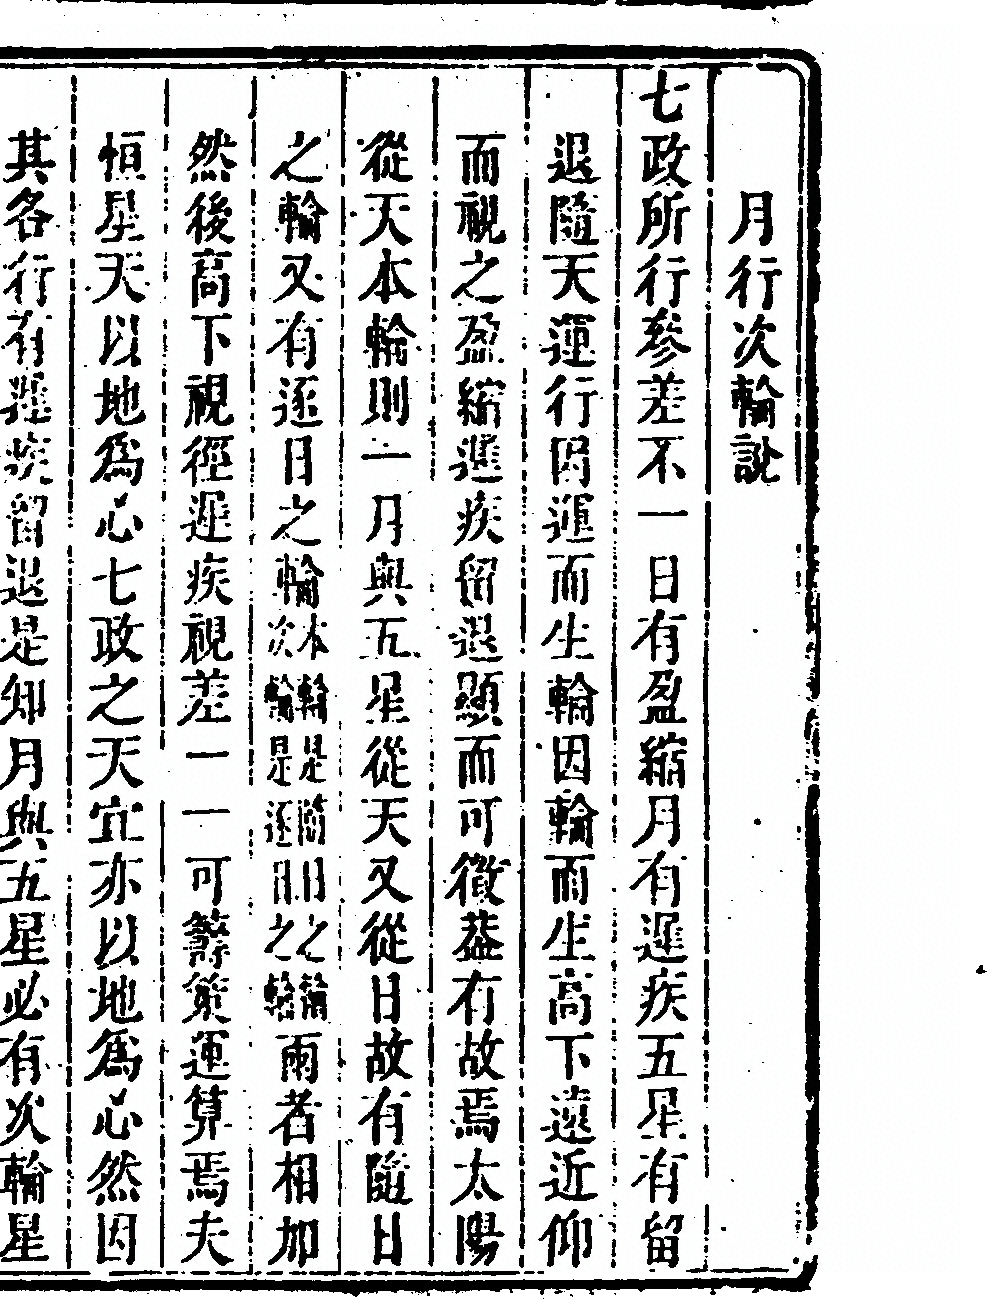 月行次輪說
七政所行參差不一日有盈縮月有遲疾五星有留
退隨天運行因運而生輪因輪而生高下遠近仰
而視之盈縮遲疾留退顯而可徵葢有故焉太陽
從天本輪則一月與五星從天又從日故有隨日
之輪又有逐日之輪本輪是隨日之輪次輪是逐日之輪兩者相加
然後高下視徑遲疾視差一一可籌策運算焉夫
恒星天以地爲心七政之天宜亦以地爲心然因
其各行有遲疾留退是知月與五星必有次輪星